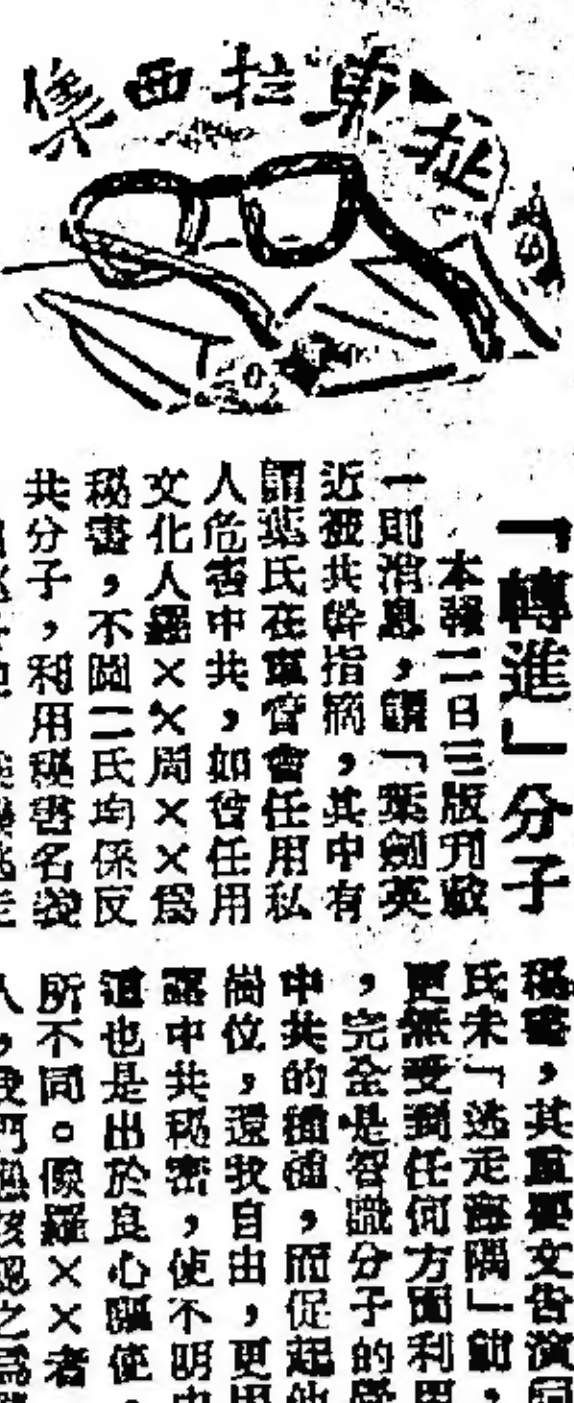 集西拉東征
「轉進」分子
本報二日三版刊載
一則消息，謂「葉劍英
近被共幹指摘，其中有
謂葉氏在軍管會任用私
人危害中共，如曾任用
文化人羅××周××爲
秘書，不圖二氏均係反
共分子，利用秘書名義
秘書，其重要文告演詞
氏未「逃走海隅」前，
更無受到任何方面利用
，完全是智識分子的
中共的種種，而促起他
崗位，還我自由，更用
露中共秘密，使不明中
道也是出於良心驅使，
所不同。像羅××者
人，我們應該認之爲